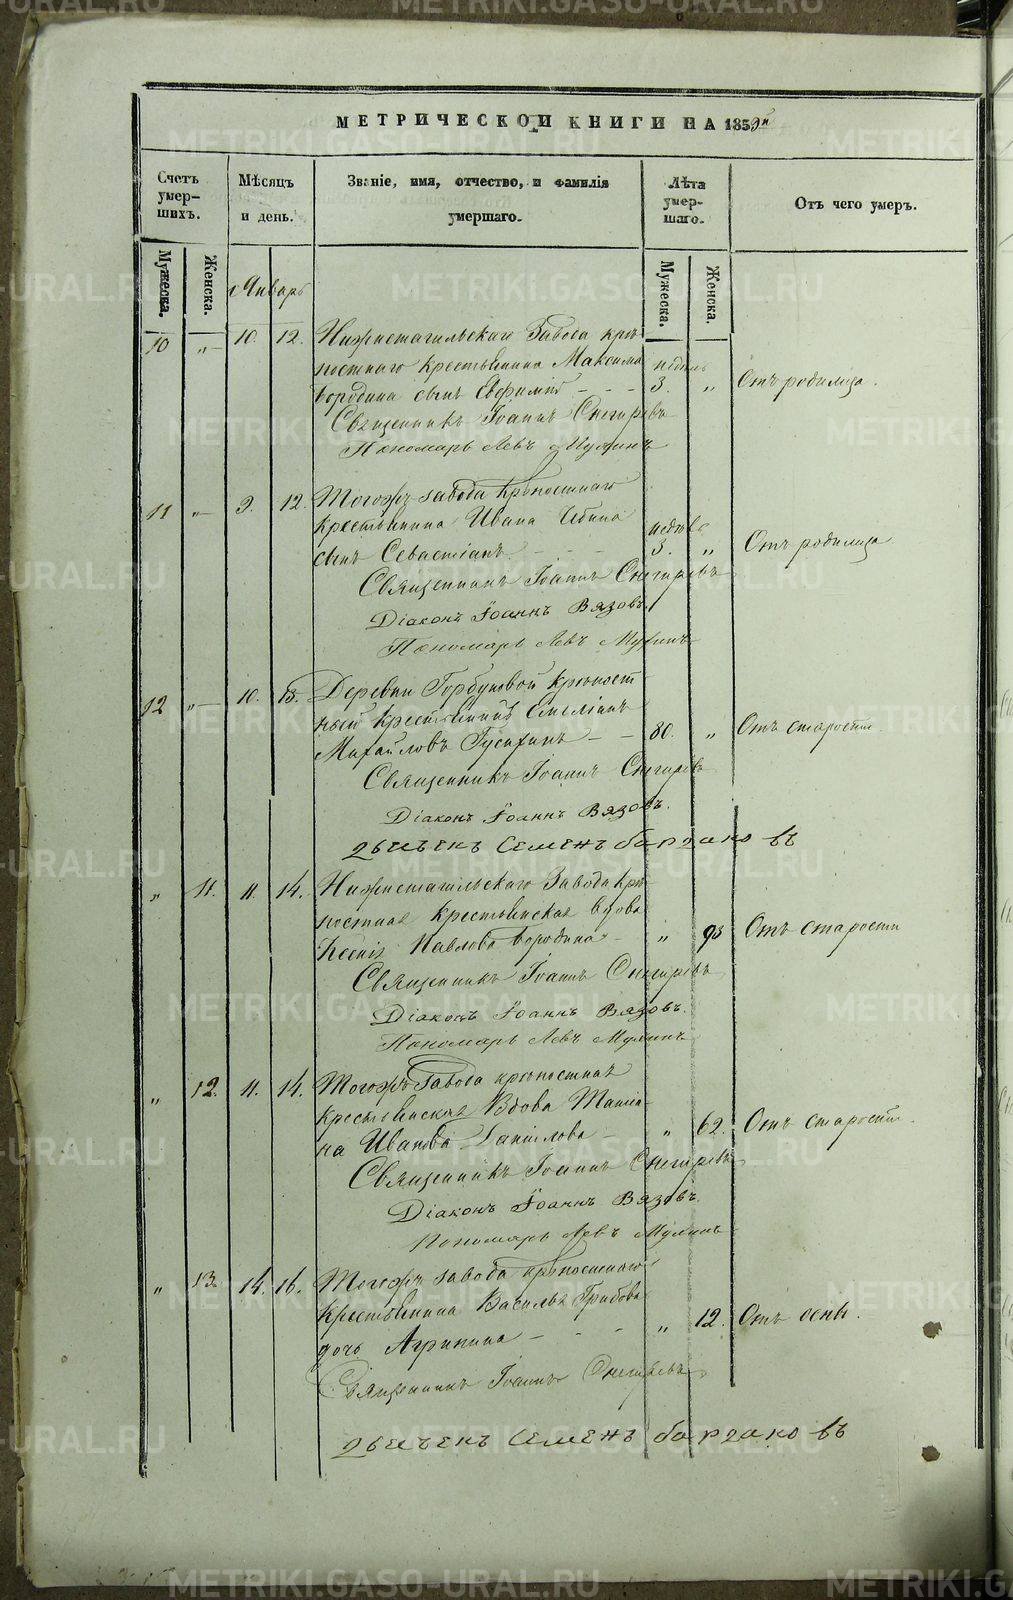 МЕТРИЧЕСКОЙ КНИГИ НА 1859й
Счетъ умер-шихъ.
Мѣсяцъ и день.
Званіе, имя, отчество, и фамилія умершаго.
Лѣта умер-шаго.
Отъ чего умеръ.
Мужеска. Женска.
Мужеска. Женска.
Январь
10 „ 10. 12. Нижнетагильскаго Завода крѣ-
постнаго крестьянина Максима недѣль
Бородина сынъ Евфимій - - - 3. „ Отъ родимца.
Священникъ Іоаннъ Снегиревъ
Пономарь Левъ Мухинъ
11 „ 9. 12. Тогожъ завода крѣпостнаго
крестьянина Ивана недѣль
сынъ Севастіанъ - - - 3. „ Отъ родимца
Священникъ Іоаннъ Снегиревъ
Діаконъ Іоаннъ Вязовъ.
Пономарь Левъ Мухинъ
12 „ 10. 13. Деревни Горбуновой крѣпост
ный крестьянинъ Емеліанъ
Михайловъ Гусихинъ - - 80. „ Отъ старости.
Священникъ Іоаннъ Снегиревъ
Діаконъ Іоаннъ Вязовъ.
Семенъ
„ 11. 11. 14. Нижнетагильскаго Завода крѣ
постная крестьянская вдова
Ксенія Павлова Бородина - „ 93 Отъ старости
Священникъ Іоаннъ Снегиревъ
Діаконъ Іоаннъ Вязовъ.
Пономарь Левъ Мухинъ
„ 12. 11. 14. Тогожъ Завода крѣпостная
крестьянская Вдова Татія-
на Иванова Данилова - „ 62. Отъ старости.
Священникъ Іоаннъ Снегиревъ
Діаконъ Іоаннъ Вязовъ.
Пономарь Левъ Мухинъ
„ 13. 14. 16. Тогожъ завода крѣпостнаго
крестьянина Василья Грибова
дочь Агрипина - - - „ 12. Отъ оспы.
Священникъ Іоаннъ Снегиревъ
Семенъ
METRIKI.GASO-URAL.RU